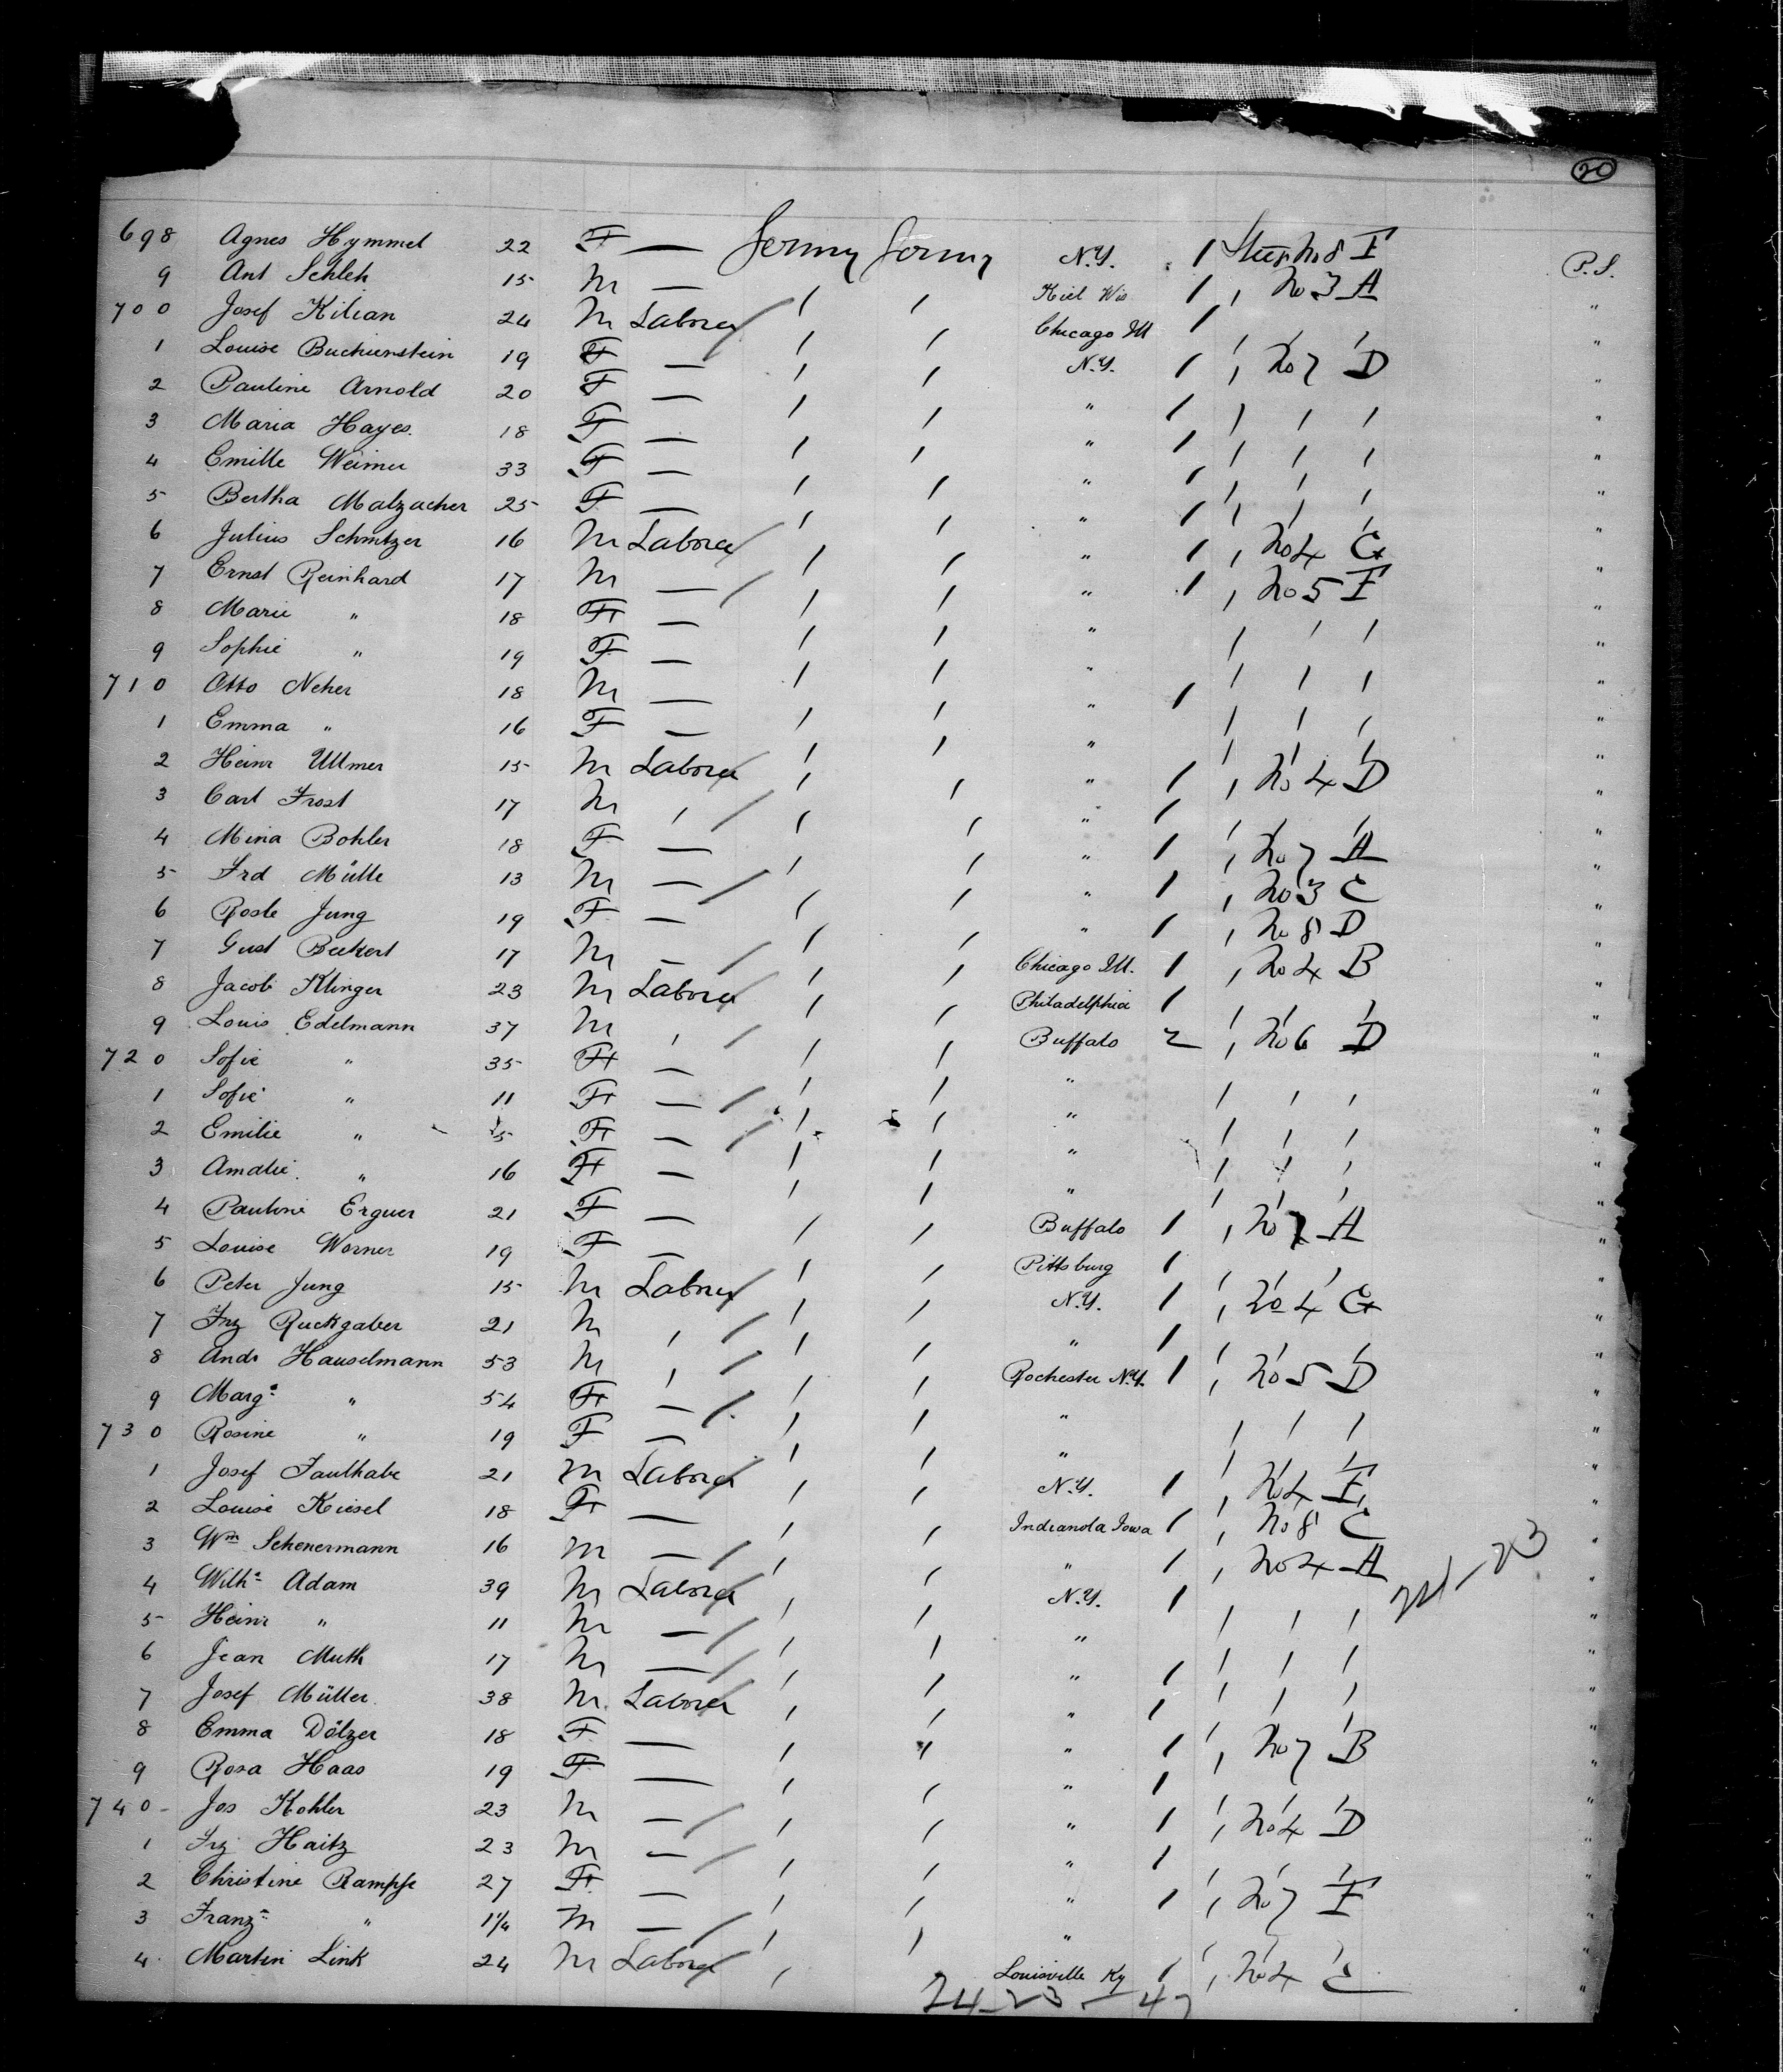 20
698 Agnes Hymmel 22 F — Germy Germy N.Y. 1 Steer No 8 F P.S.
9 Ant Schleh 15 M — / / Kiel Wis 1 / No 3 A "
700 Josef Kilian 24 M Laborer / / Chicago Ill 1 / / / "
1 Louise Buchenstein 19 F — / / N.Y. 1 / No 7 D "
2 Pauline Arnold 20 F — / / " 1 / / / "
3 Maria Hayes. 18 F — / / " 1 / / / "
4 Emilie Weimer 33 F — / / " 1 / / / "
5 Bertha Malzacher 25 F — / / " 1 / / / "
6 Julius Schnitzer 16 M Laborer / / " 1 / No 4 G "
7 Ernst Reinhard 17 M — / / " 1 / No 5 F "
8 Marie " 18 F — / / " / / / "
9 Sophie " 19 F — / / " / / / "
710 Otto Neher 18 M — / / " 1 / / / "
1 Emma " 16 F — / / " / / / "
2 Heinr Ullmer 15 M Laborer / / " 1 / No 4 D "
3 Carl Frost 17 M / / / " 1 / / "
4 Mina Bohler 18 F — / / " 1 / No 7 A "
5 Frd Mülle 13 M — / / " 1 / No 3 C "
6 Rosle Jung 19 F — / / " 1 / No 8 D "
7 Gust Beckert 17 M — / / Chicago Ill. 1 / No 4 B "
8 Jacob Klinger 23 M Laborer / / Philadelphia 1 / / "
9 Louis Edelmann 37 M / / / Buffalo 2 / No 6 D "
720 Sofie " 35 F — / / " / / / "
1 Sofie " 11 F — / / " / / / "
2 Emilie " 5 F — / / " / / / "
3 Amalie " 16 F — / / " / / / "
4 Pauline Erguer 21 F — / / Buffalo 1 / No 7 A "
5 Louise Worner 19 F — / / Pittsburg 1 / / / "
6 Peter Jung 15 M Laborer / / N.Y. 1 / No 4 G "
7 Frz Ruckgaber 21 M / / / " 1 / / / "
8 Andr Hauselmann 53 M / / / Rochester N.Y. 1 / No 5 D "
9 Marga " 54 F — / / " / / / "
730 Rosine " 19 F — / / " / / / "
1 Josef Faulhabe 21 M Laborer / / N.Y. 1 / No 4 F "
2 Louise Kiesel 18 F — / / Indianola Iowa 1 / No 8 C "
3 Wm Schenermann 16 M — / / " 1 / No 4 A "
24–23
4 Wilh Adam 39 M Laborer / / N.Y. 1 / / / "
5 Heinr " 11 M — / / " / / / "
6 Jean Muth 17 M — / / " 1 / / / "
7 Josef Müller 38 M Laborer / / " 1 / / / "
8 Emma Dölzer 18 F — / " " 1 / No 7 B "
9 Rosa Haas 19 F — / / " 1 / / "
740 - Jos Kohler 23 M — / / " 1 / No 4 D "
1 Frz Haitz 23 M — / / " 1 / / "
2 Christine Rampfe 27 F — / / " 1 / No 7 F "
3 Franz " 1 1/4 M — / / " / / / "
4 Martin Link 24 M Laborer / Louisville Ky 1 / No 4 C "
24–23–47